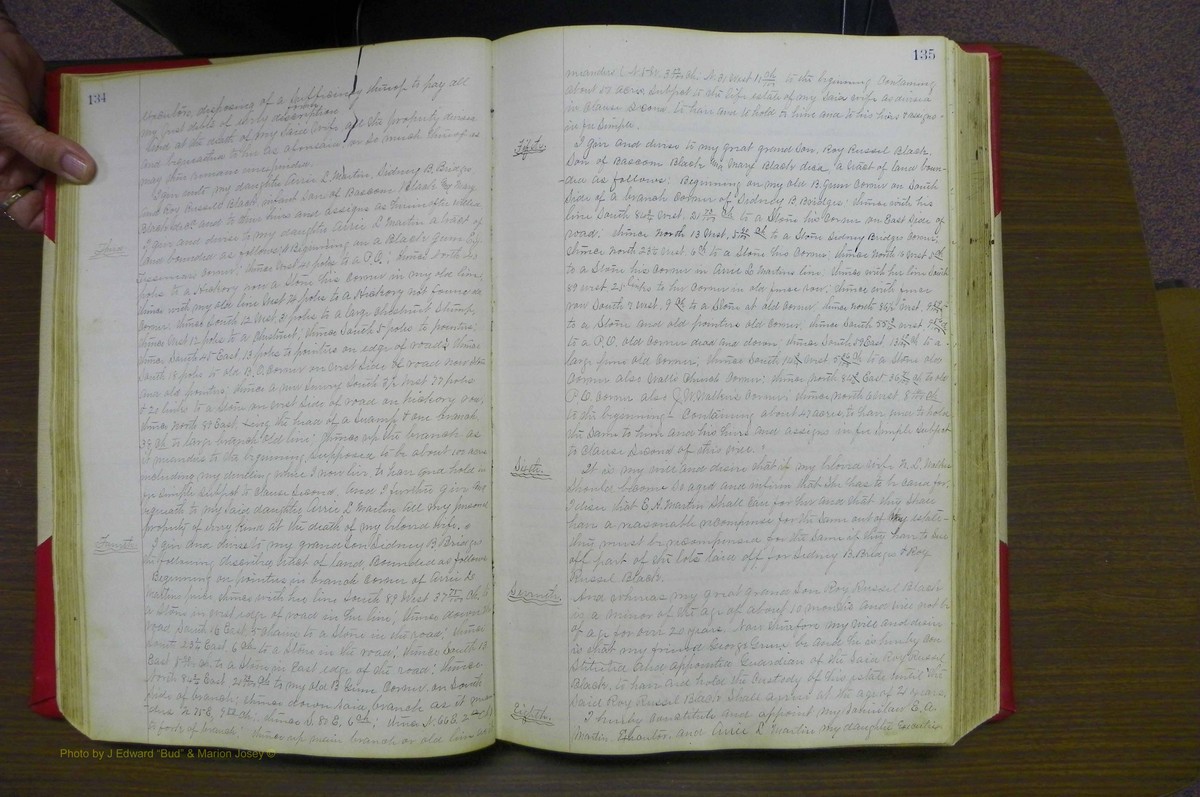 134
executors, disposing of a sufficiency thereof to pay all
my just debts of every description
land at the death of my said wife all the property devised
and bequeathed to her as aforesaid or so much thereof as
may then remain
I give unto my daughter Arrie L Martin, Sidney B. Bridges
and Roy Russell Black, infant son of Bascom Black and Mary
Black decd and to their heirs and assigns as hereinafter
Third
I give and devise to my daughter Arrie L Martin a tract of
land bounded as follows: Beginning on a Black Gum
corner; thence West 20 poles to a P.O.; thence South
poles to a Hickory now a Stone his corner in my old line;
thence with my old line West 76 poles to a Hickory not found
corner; thence South 12 West 5 poles to a large chestnut stump;
thence West 12 poles to a chestnut, thence South 5 poles to pointers;
thence South 45 East, 13 poles to pointers on edge of road;
South 18 poles to old B.O. corner on West side of road now
and old pointers; thence a new survey South West 77 poles
& 20 links to a Stone on West side of road on hickory row.
thence North 80 East, long the head of a swamp & one branch
to large branch old line; thence up the branch as
it meanders to the beginning, supposed to be about 100 acres
including my dwelling where I now live to have and hold in
fee simple subject to clause second. And I further give
bequeath to my said daughter Arrie L Martin all my personal
property of every kind at the death of my beloved wife.
Fourth
I give and devise to my grand son Sidney B Bridges
the following described tract of land, bounded as follows
Beginning on pointers in branch corner of Arrie L.
Martins line; thence with her line South 89 West 37 Ch to
a Stone in West edge of road in her line; thence down
road South 16 East, 5 chains to a Stone in the road; thence
South 23½ East, 6 ch to a Stone in the road; thence South 13
East 5 ch to a Stone in East edge of the road; thence
North 84½ East 21 ch to my old B Gum corner on South
side of branch; thence down said branch as it
N 75 E, 9 ch; thence S. 81 E, 6 ch; thence N. 66 E.
to fork of branch; thence up main branch or old line
135
meanders N. 5 W. 3 ch. N. 31 West 11 ch to the beginning Containing
about acres Subject to the life estate of my said wife as devised
in clause Second to have and to hold to him and to his heirs & assigns
in fee simple.
Fifth
I give and devise to my great grand son, Roy Russel Black,
Son of Bascom Black and Mary Black decd, a tract of land boun-
ded as follows: Beginning on my old B. Gum corner on South
side of a branch corner of Sidney B Bridges; thence with his
line South 84½ West, 21 ch to a Stone his corner on East side of
road. thence North 13 West, 5 ch to a Stone Sidney Bridges corner;
thence North 23½ West 6 ch to a Stone his corner; thence North West 5 ch
to a Stone his corner in Arrie L Martins line. thence with her line South
89 West, 25 links to her corner in old fence row; thence with fence
row South 7 West, 9 ch to a Stone at old corner; thence North 36½ West,
to a Stone and old pointers old corner, thence South 55½ West,
to a P.O. old corner dead and down; thence South 59 East 13 ch to a
large pine old corner; thence South 14½ West 5 ch to a Stone old
corner also Walls Church corner; thence North 84½ East, 36 ch to old
P.O. corner also J.W. Walkers corner; thence North West 5 ch
to the beginning Containing about 47 acres, to have and to hold
the same to him and his heirs and assigns in fee simple subject
to clause Second of this will.
Sixth
It is my will and desire that if my beloved wife N. L. Walker
Should become so aged and infirm that she has to be cared for,
I desire that E. A. Martin shall care for her and that they shall
have a reasonable recompense for the same out of my estate -
they must be recompensed for the same if they have to sell
off part of the lots laid off for Sidney B. Bridges & Roy
Russel Black.
Seventh
And whereas my great grand son Roy Russel Black
is a minor of the age of about 10 months and will not be
of age for over 20 years. Now therefore my will and desire
is that my friend George Green be and he is hereby con
stituted and appointed Guardian of the said Roy Russel
Black, to have and hold the custody of his estate until the
said Roy Russel Black shall arrive at the age of 21 years.
Eighth
I hereby constitute and appoint my son in law E. A.
Martin, Executor, and Arrie L Martin my daughter Executrix
Photo by J Edward "Bud" & Marion Josey ©